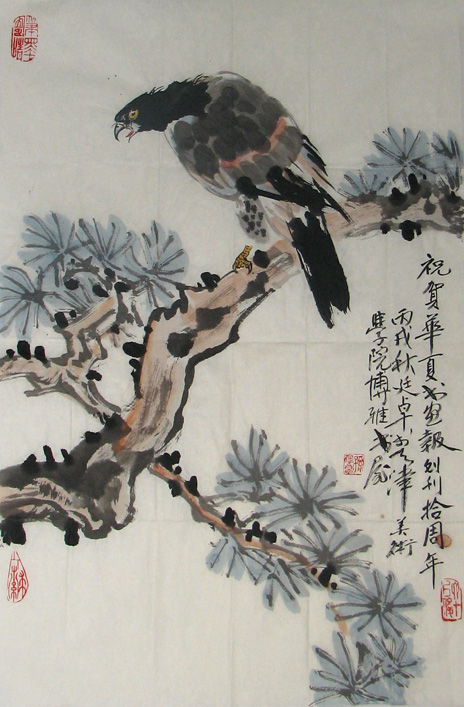 祝贺华夏书画報创刊拾周年
丙戌秋廷卓於天津美術
學院博雅書屋